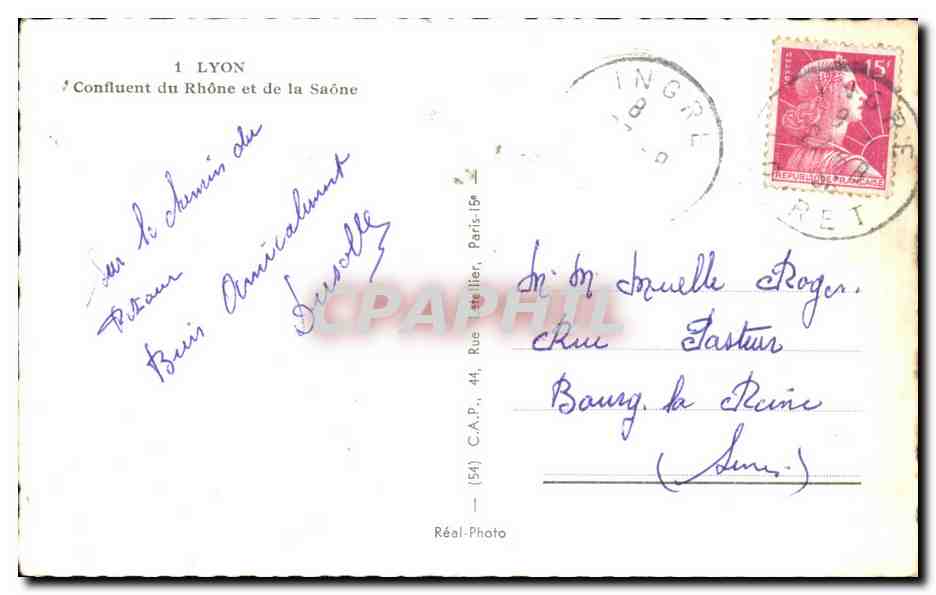 1 LYON
Confluent du Rhône et de la Saône
Sur le chemin du
retour
Bien Amicalement
INGRE
8
15F
POSTES
REPUBLIQUE FRANCAISE
INGRE
LOIRET
M. M. Muelle Roger.
Rue Pasteur
Bourg. la Reine
(Seine.)
(54) C.A.P., 44, Rue Letellier, Paris-15e
Réal-Photo
CPAPHIL